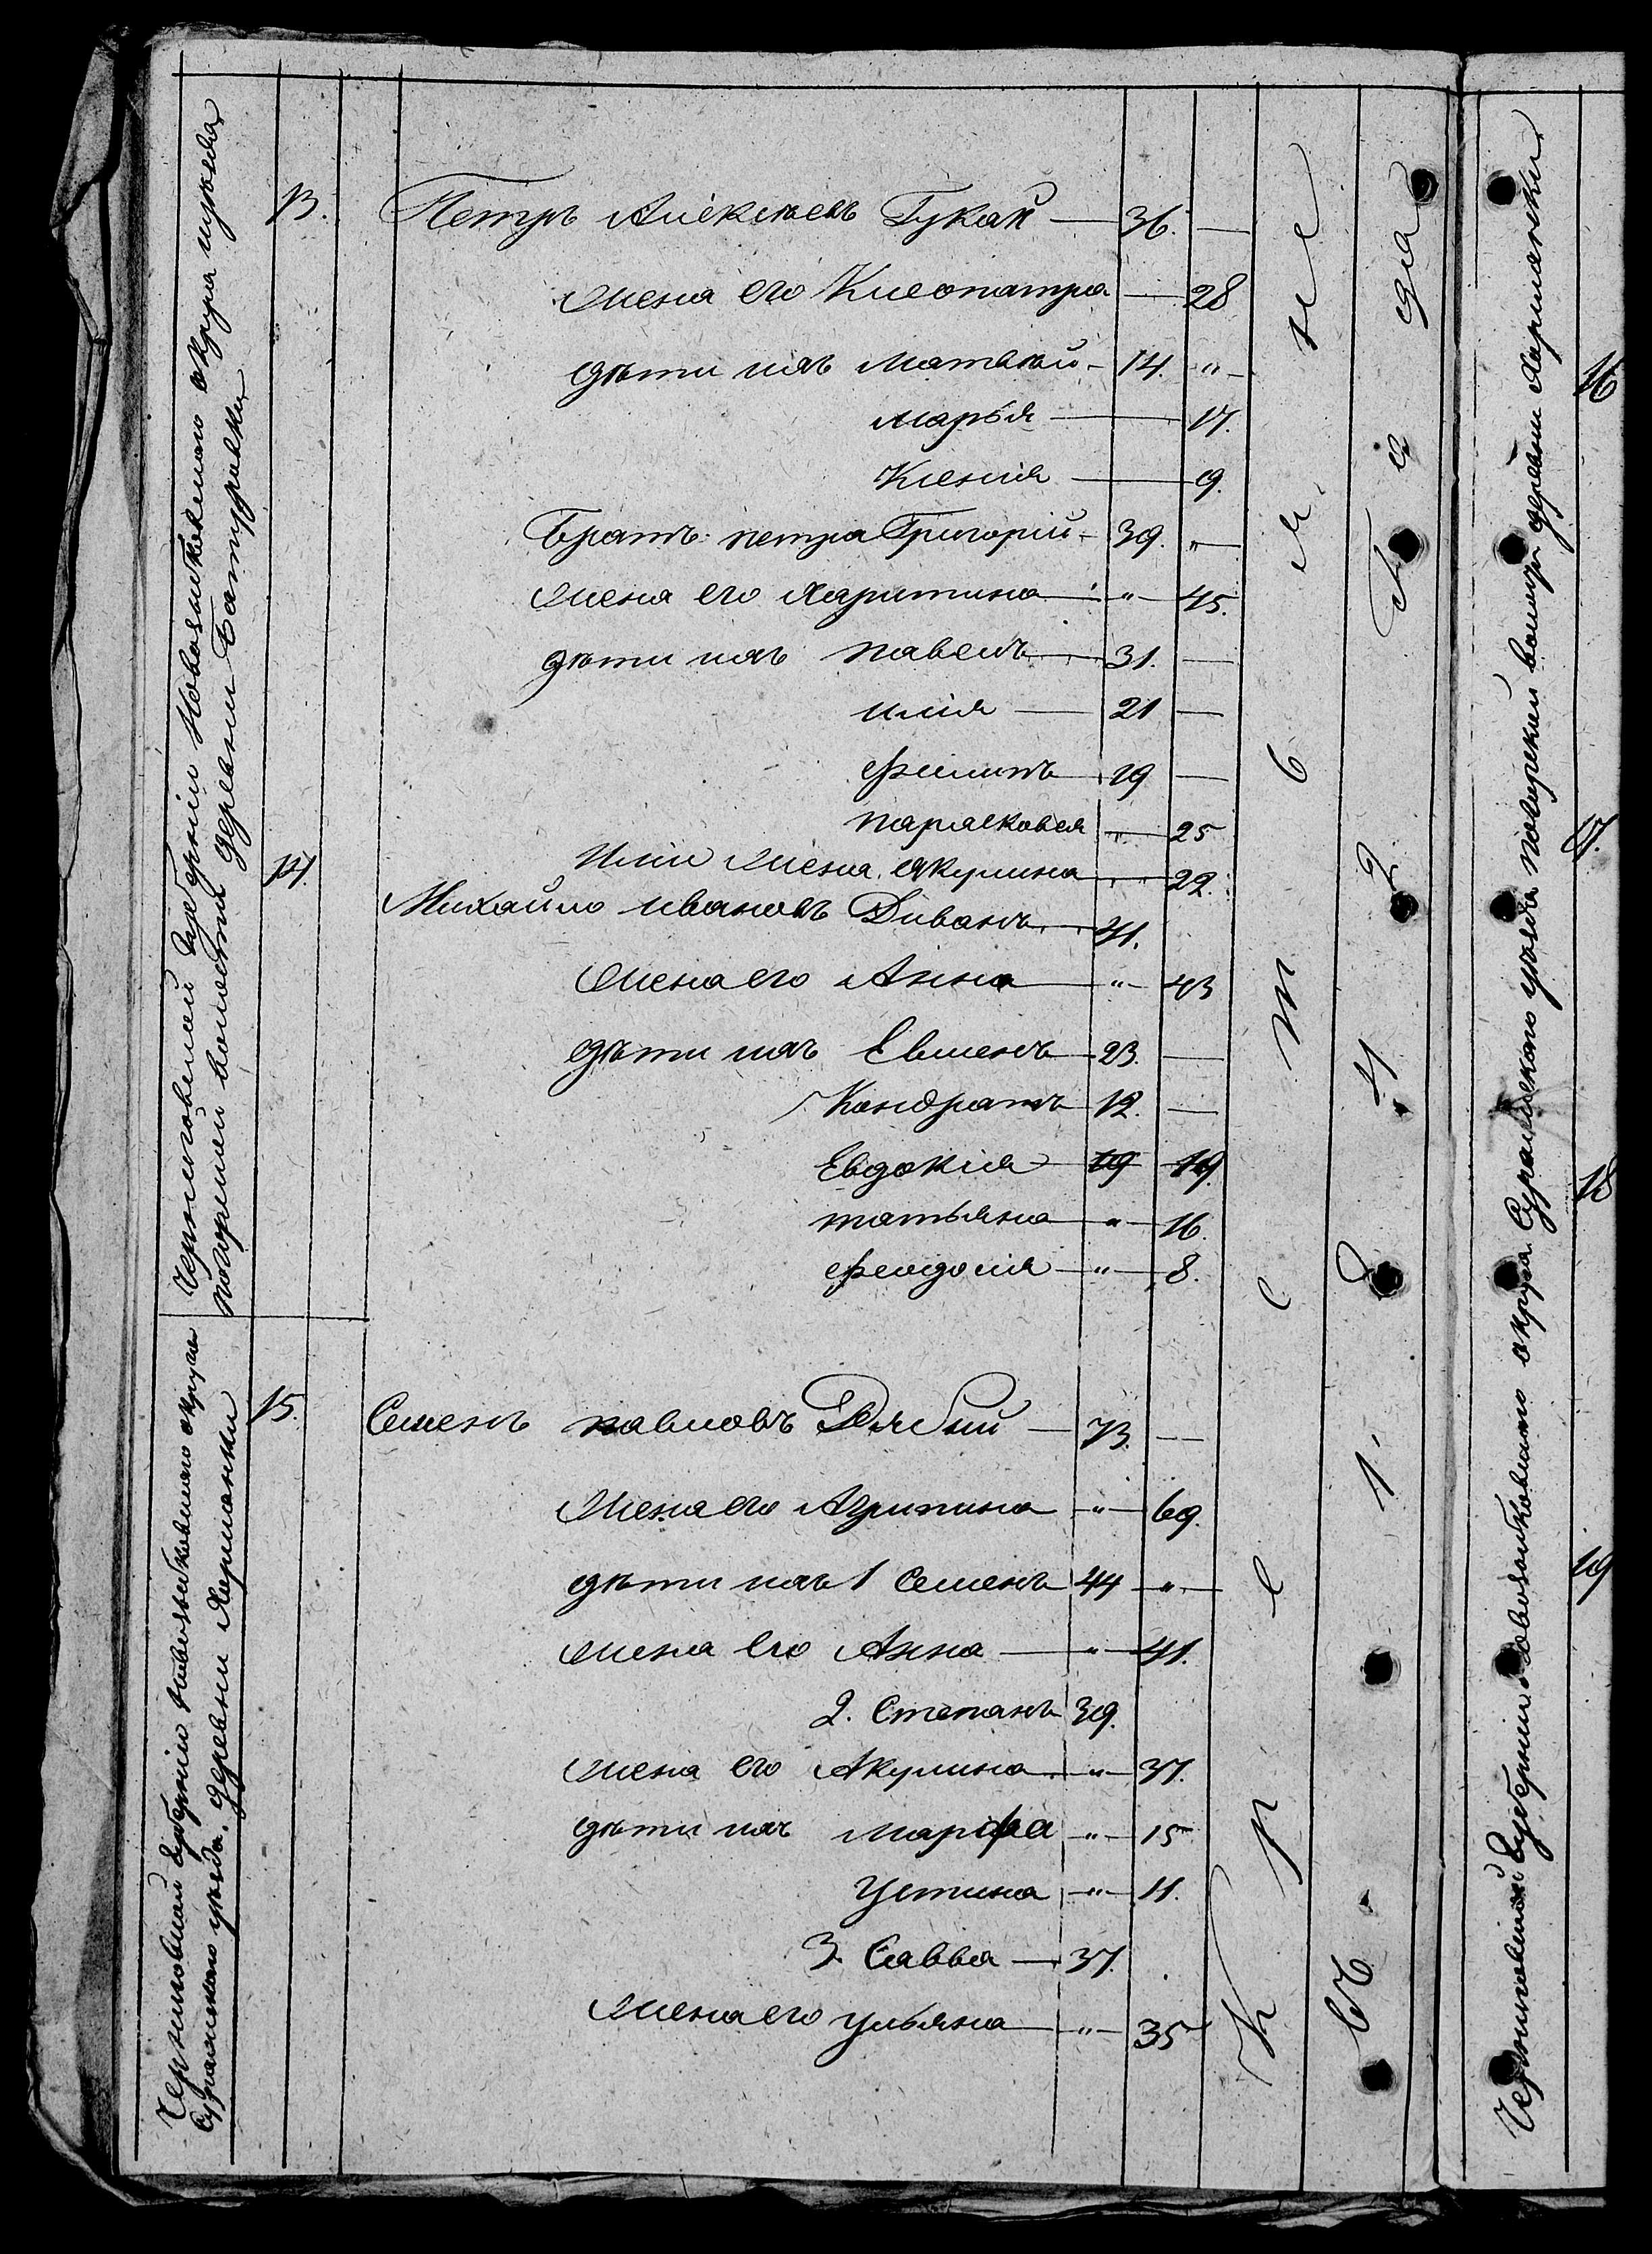 Черниговской губерніи Новозыбковского округа
погорской волости деревни Батуровки
13. Петръ Алексѣевъ Гукай — 36. —
жена его Клеопатра — 28
дѣти ихъ Матвѣй — 14. "
марья — 17.
Ксенія — 9.
Братъ петра Григорій — 39. "
жена его Харитина " 45.
дѣти ихъ павелъ — 31. —
илія — 21 —
филипъ 19 —
парасковея " 25
Иліи жена, Якулина " 22.
14. Михайло ивановъ Диванъ 41.
жена его Анна " 43
дѣти ихъ Евменъ 23. —
Кондратъ 12. —
Евдокія 19 19.
татьяна " 16.
феодосія " 8.
Черниговской губерніи новозыбковского округа
Суражского уѣзда, деревни
15. Семенъ павловъ Рябый — 73. —
жена его Агрипина " 69.
дѣти ихъ 1 Семенъ 44 "
жена его Анна — " 41.
2. Степанъ 39.
жена его Акулина " 37.
дѣти ихъ марфа " 15
Устина " 11.
3. Савва — 37.
жена его ульяна " 35
К р е с т ь я не
Черниговской Губерніи Новозыбковского округа Суражского уѣзда погарской волости деревни
16
17.
18
19